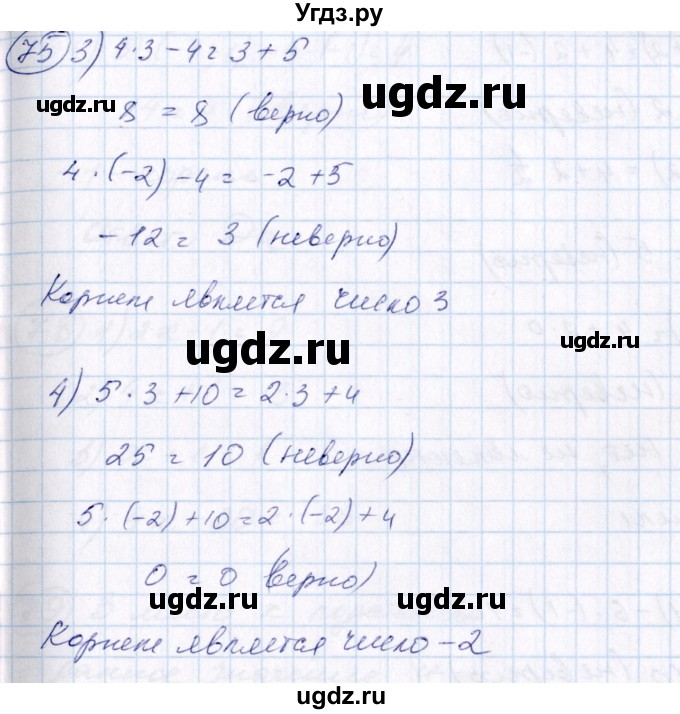 Угдз.ру
75 3) 4·3-4=3+5
ugdz.ru
ugdz.ru
8 = 8 (верно)
4·(-2)-4= -2+5
-12 = 3 (неверно)
Корнем является число 3
ugdz.ru
ugdz.ru
4) 5·3+10=2·3+4
25 = 10 (неверно)
5·(-2)+10=2·(-2)+4
0 = 0 верно)
ugdz.ru
ugdz.ru
Корнем является число -2
ugdz.ru